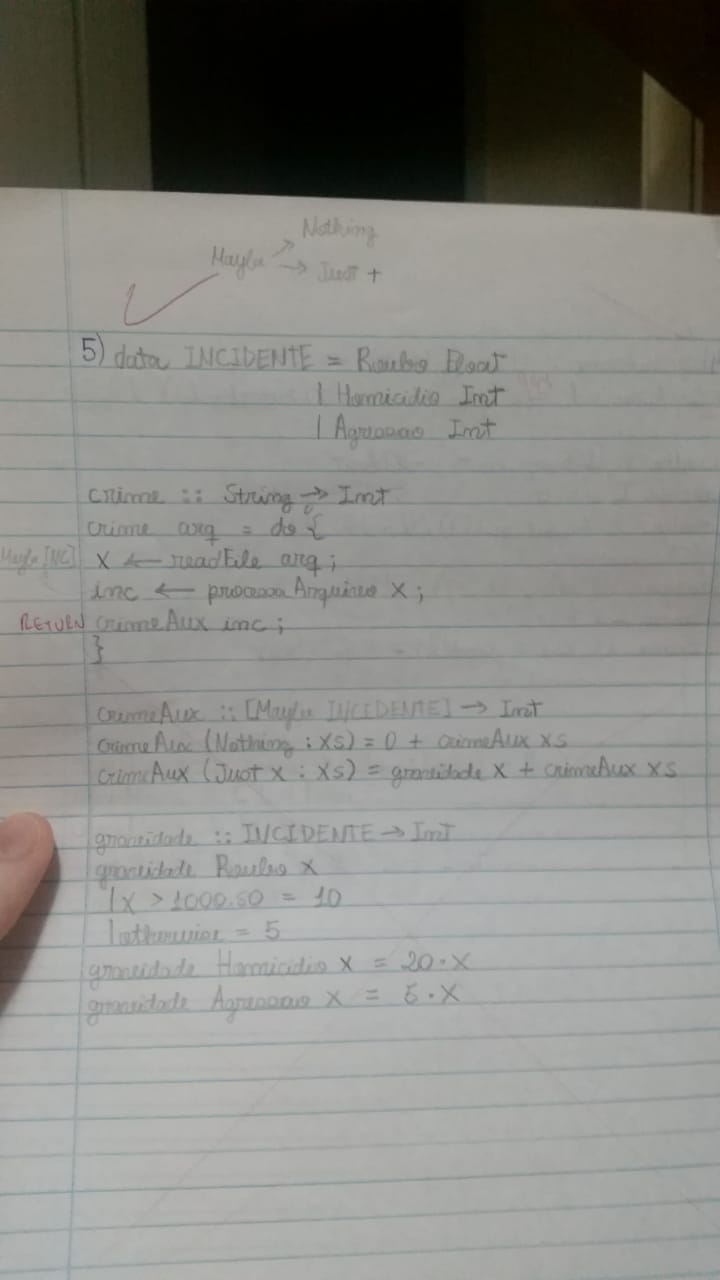 Nothing
Maybe → Just +
5) data INCIDENTE = Roubo Float
| Homicidio Int
| Agressao Int
crime :: String → Int
crime arq = do {
x ← readFile arq;
inc ← processaArquivo x;
RETURN crimeAux inc;
}
crimeAux :: [Maybe INCIDENTE] → Int
crimeAux (Nothing : xs) = 0 + crimeAux xs
crimeAux (Just x : xs) = gravidade x + crimeAux xs
gravidade :: INCIDENTE → Int
gravidade Roubo x
| x > 1000.50 = 10
| otherwise = 5
gravidade Homicidio x = 20 * x
gravidade Agressao x = 5 * x